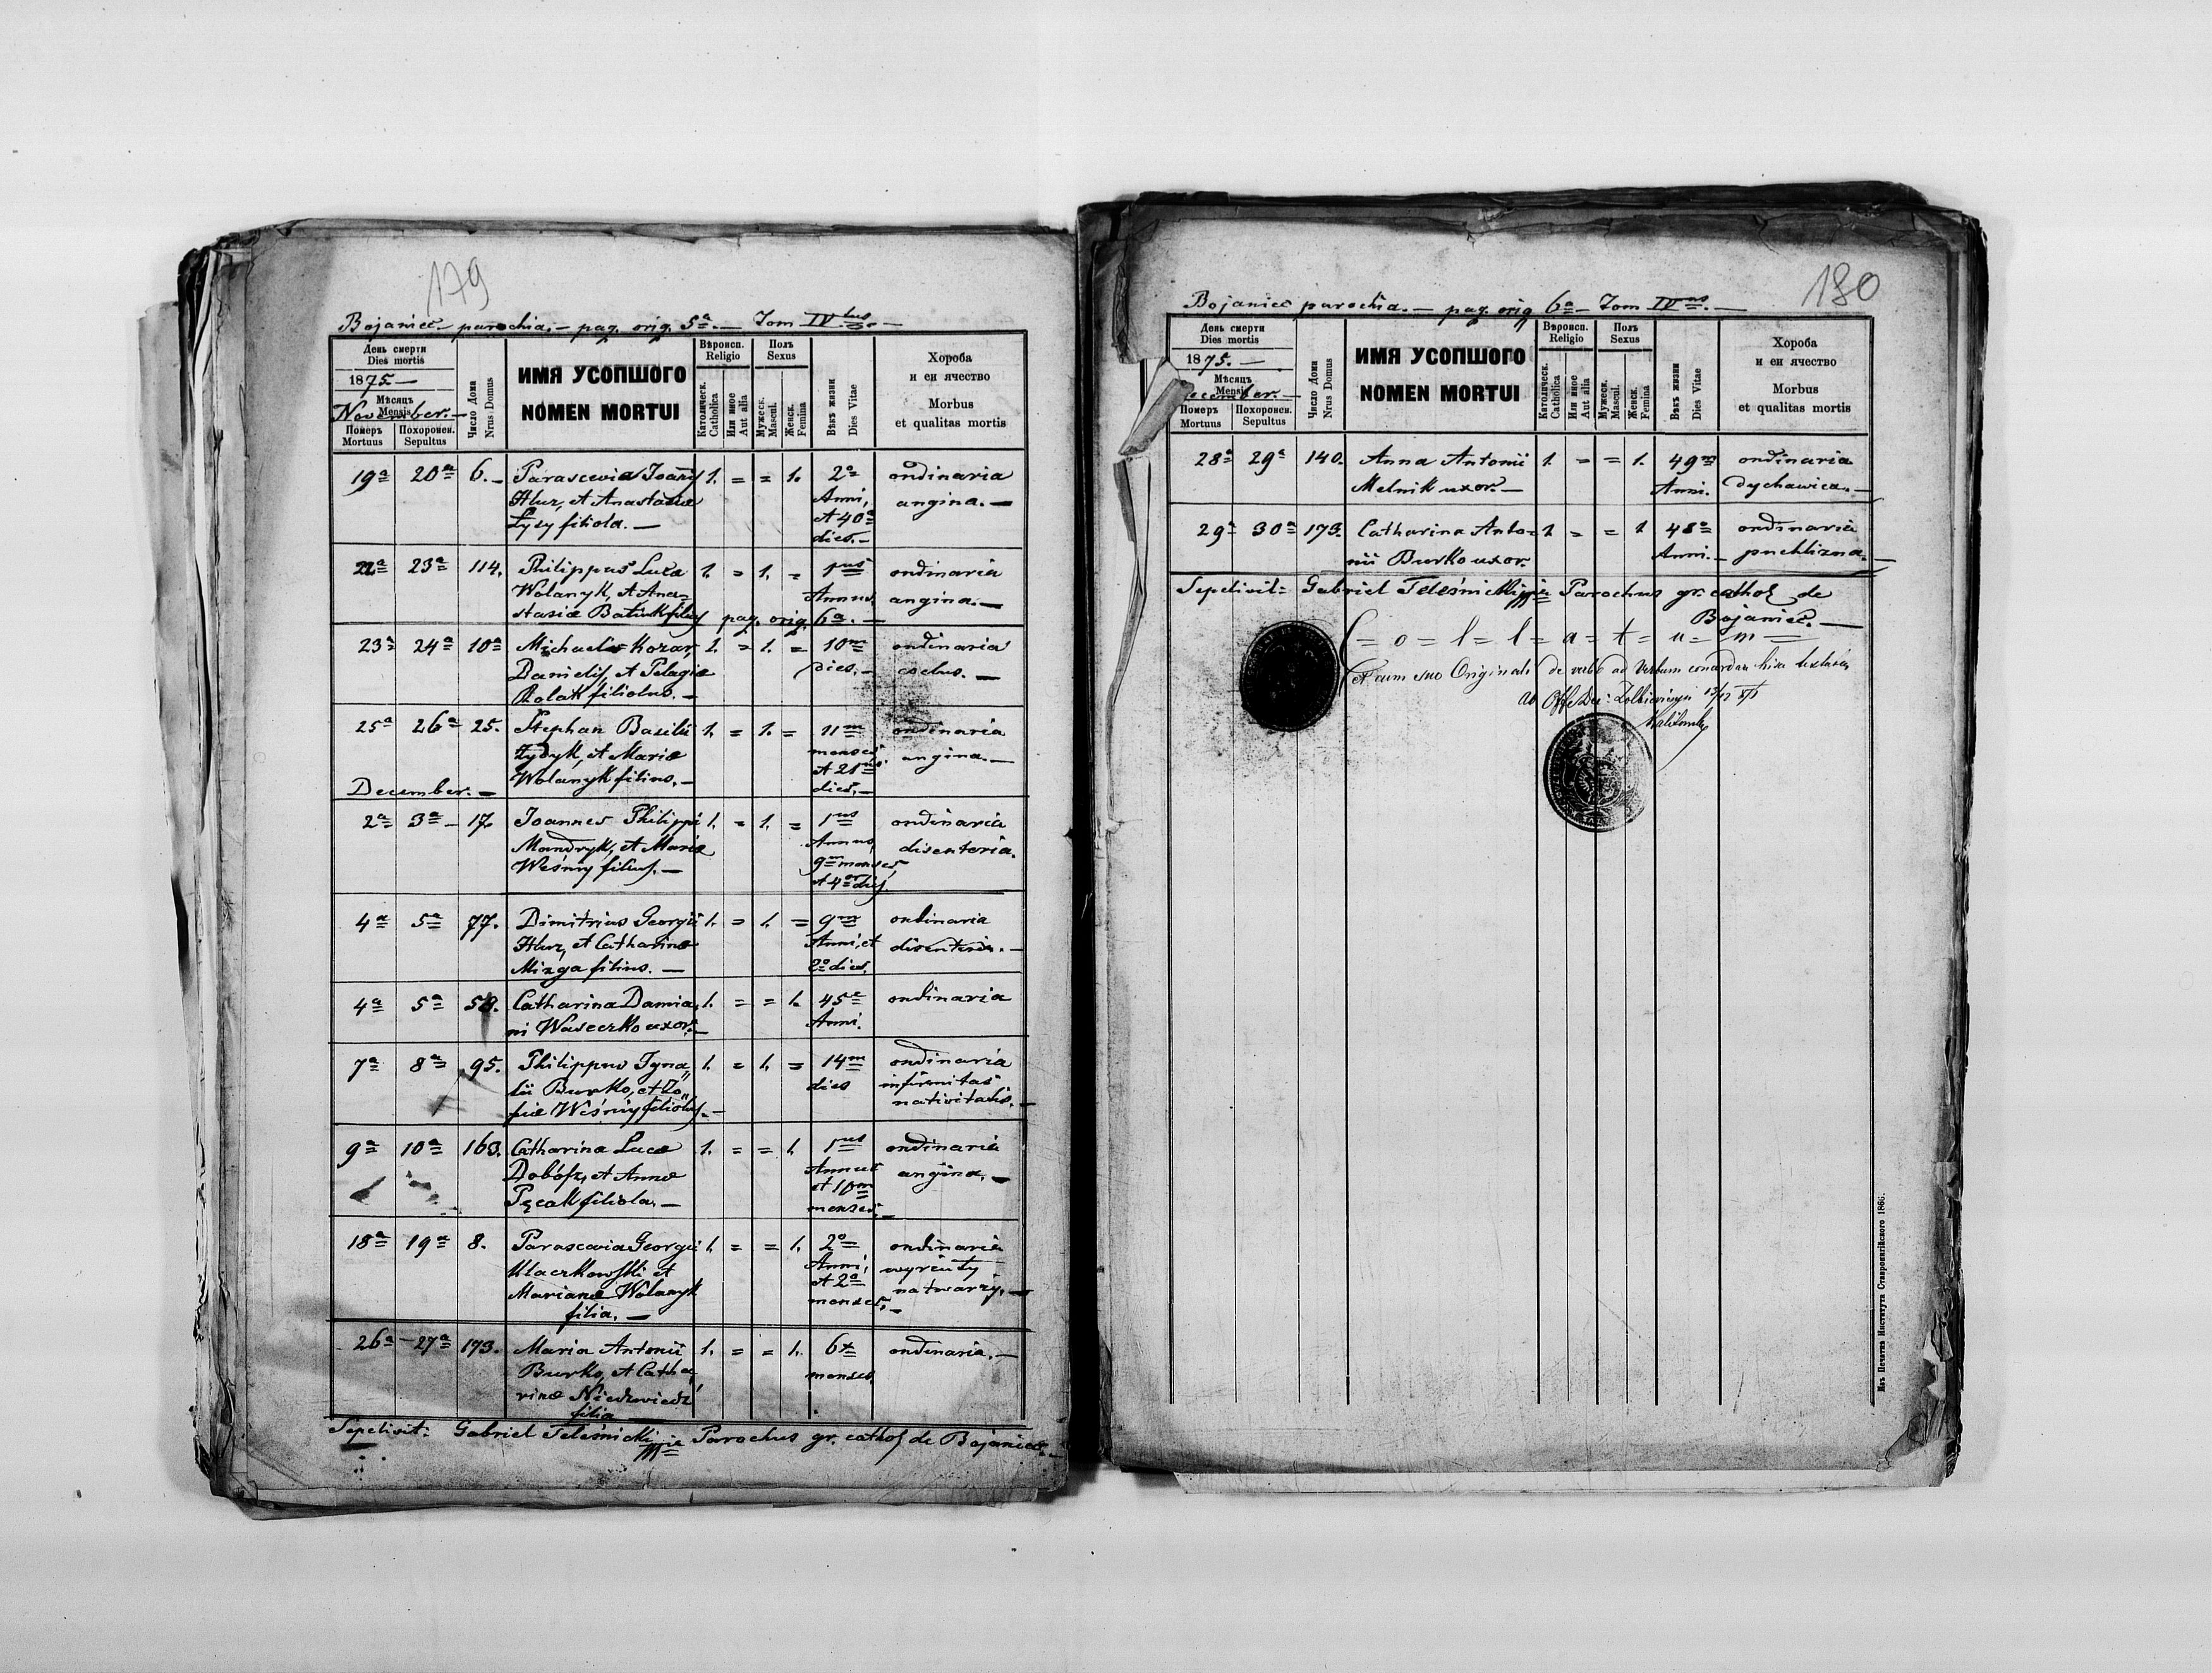 179
Bojaniec parochia. — pag. orig. 5ª. — Tom IVtus. —
День смерти
Dies mortis
1875. —
Мѣсяцъ
Mensis
November. —
Померъ
Mortuus
Похоронен.
Sepultus
Число Дома
Nrus Domus
ИМЯ УСОПШОГО
NOMEN MORTUI
Вѣроисп.
Religio
Католическ.
Catholica
Или иное
Aut alia
Полъ
Sexus
Мужеск.
Mascul.
Женск.
Femina
Вѣкъ жизни
Dies Vitae
Хороба
и еи ячество
Morbus
et qualitas mortis
19ª 20ª 6. — Parascevia Joañis 1. = = 1. 2o ordinaria
Hluz, et Anastasiæ Anni, angina. —
Łysy filiola. — et 40ª
dies. —
22ª 23ª 114. Philippus Lucæ 1. = 1. = 1us ordinaria
Wolanyk, et Ana= Annus, angina. —
stasiæ Batiuk filius pag. orig. 6ª. —
23ª 24ª 10ª Michael Kozar 1. = 1. = 10m ordinaria
Danielis, et Pelagiæ Dies. —
Rolak filiolus. —
25ª 26ª 25. Stephan Basilii 1. = 1. = 11m ordinaria
Żydyk, et Mariæ menses angina. —
Wolanyk filius. — et 21us
December. — dies. —
2ª 3ª — 17. Joannes Philippi 1. = 1. = 1us ordinaria
Mandryk, et Mariæ Annus, disenteria.
Weśny filius. — 9m menses,
et 4or dies.
4ª 5ª 77. Dimitrius Georgii 1. = 1. = 9m ordinaria
Hluz, et Catharinæ Anni, et disenteria. —
Mizga filius. — 2o dies.
4ª 5ª 58. Catharina Damia, 1. = = 1. 45e ordinaria
ni Waseczko uxor. — Anni.
7ª 8ª 95. Philippus Igna„ 1. = 1. = 14m ordinaria
tii Burko, et Zo„ dies infirmitas
fiæ Weśny filiolus. — nativitatis. —
9ª 10ª 163. Catharina Lucæ 1. = = 1. 1us ordinaria
et Annæ Annus angina. —
Pęcak filiola. — et 10m
menses. —
18ª 19ª 8. Parascevia Georgii 1. = = 1. 2o ordinaria
Klaczkowski et Anni, wyrzuty
Marianæ Wolanyk et 2o na twarzy. —
filia. — menses. —
26ª — 27ª 173. Maria Antonii 1. = = 1. 6x ordinaria. —
Burko, et Catha, menses.
rinæ Niedzwiedz
filia —
Sepelivit: Gabriel Teleśnicki Parochus gr. cathol de Bojaniec. —
180
Bojaniec parochia. — pag. orig 6ª — Tom IVus. —
День смерти
Dies mortis
1875. —
Мѣсяцъ
Mensis
December. —
Померъ
Mortuus
Похоронен.
Sepultus
Число Дома
Nrus Domus
ИМЯ УСОПШОГО
NOMEN MORTUI
Вѣроисп.
Religio
Католическ.
Catholica
Или иное
Aut alia
Полъ
Sexus
Мужеск.
Mascul.
Женск.
Femina
Вѣкъ жизни
Dies Vitae
Хороба
и еи ячество
Morbus
et qualitas mortis
28ª 29ª 140. Anna Antonii 1. = = 1. 49m ordinaria
Melnik uxor. — Anni. dychawica. —
29ª 30ª 173. Catharina Anto= 1 = = 1 48ª ordinaria
nii Burko uxor. Anni. — puchlizna. —
Sepelivit: Gabriel Teleśnicki Parochus gr. cathol de
Bojaniec. —
C = o = l = l = a = t = u = m =
Et cum suo Originali de verbo ad verbum concordare hisce testatur
Изъ Печатнѣ Института Ставропигійского 1866.